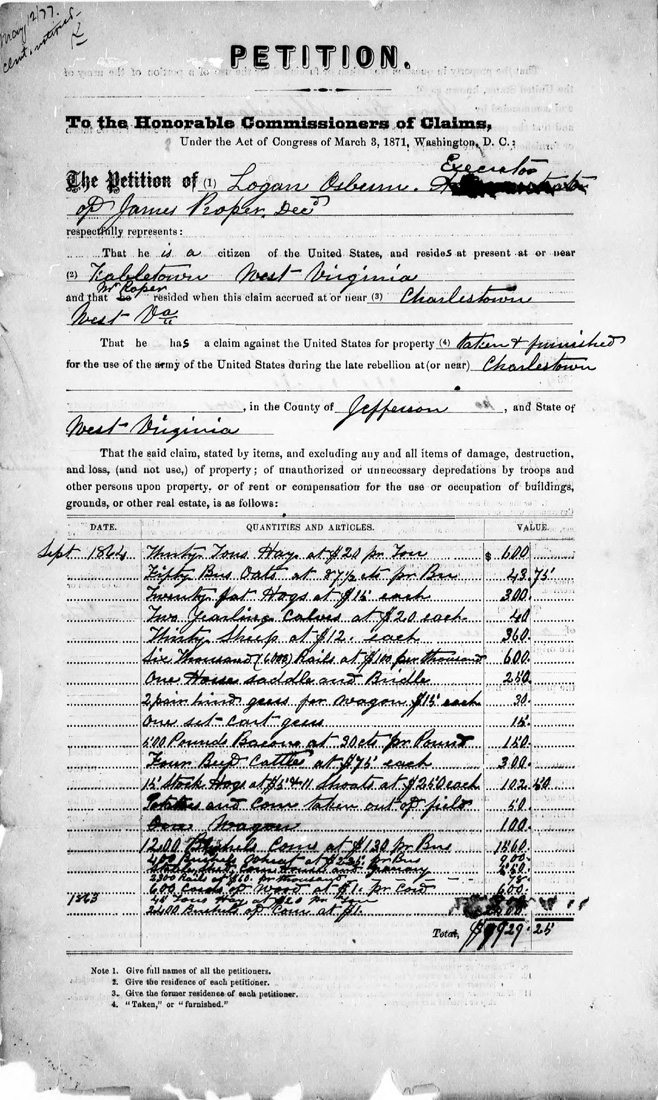 May 12/77.
PETITION.
To the Honorable Commissioners of Claims,
Under the Act of Congress of March 3, 1871, Washington, D. C.:
Executor
The Petition of (1) Logan Osburn.
of James Roper. Decd
respectfully represents:
That he is a citizen of the United States, and resides at present at or near
(2) Kabletown West Virginia
Mr Roper
and that he resided when this claim accrued at or near (3) Charlestown
West Va
That he has a claim against the United States for property (4) taken & furnished
for the use of the army of the United States during the late rebellion at (or near) Charlestown
, in the County of Jefferson , and State of
West Virginia
That the said claim, stated by items, and excluding any and all items of damage, destruction,
and loss, (and not use,) of property; of unauthorized or unnecessary depredations by troops and
other persons upon property, or of rent or compensation for the use or occupation of buildings,
grounds, or other real estate, is as follows:
DATE. QUANTITIES AND ARTICLES. VALUE.
Sept 1864 Thirty Tons Hay at $20 pr Ton $ 600
Fifty Bus Oats at 87½ cts pr Bu 43.75
Twenty fat Hogs at $15 each 300.
Two Yearling Calves at $20 each. 40
Thirty Sheep at $12. each 360.
Six Thousand (6,000) Rails at $100 per thousand 600.
One Horse saddle and Bridle 250.
2 pair hind gears for wagon $15 each 30.
One set Cart gears 15.
500 Pounds Bacon at 30 cts pr Pound 150.
Four Beef Cattle at $75 each 300.
15 Stock Hogs at $5 & 11 Shoats at $2.50 each 102.50
Potatoes and Corn taken out of field 50.
One Wagon 100.
1200 Bushels Corn at $1.30 pr Bus 1560.
400 Bushels Wheat at pr Bus 900.
Corn House and Granary
Rails at $10. pr thousand
600 Cords of Wood at $1. pr Cord 600.
1863 Tons Hay at $20 pr
2400 Bushels of Corn at $1.
Total, $9929.25
Note 1. Give full names of all the petitioners.
2. Give the residence of each petitioner.
3. Give the former residence of each petitioner.
4. "Taken," or "furnished."